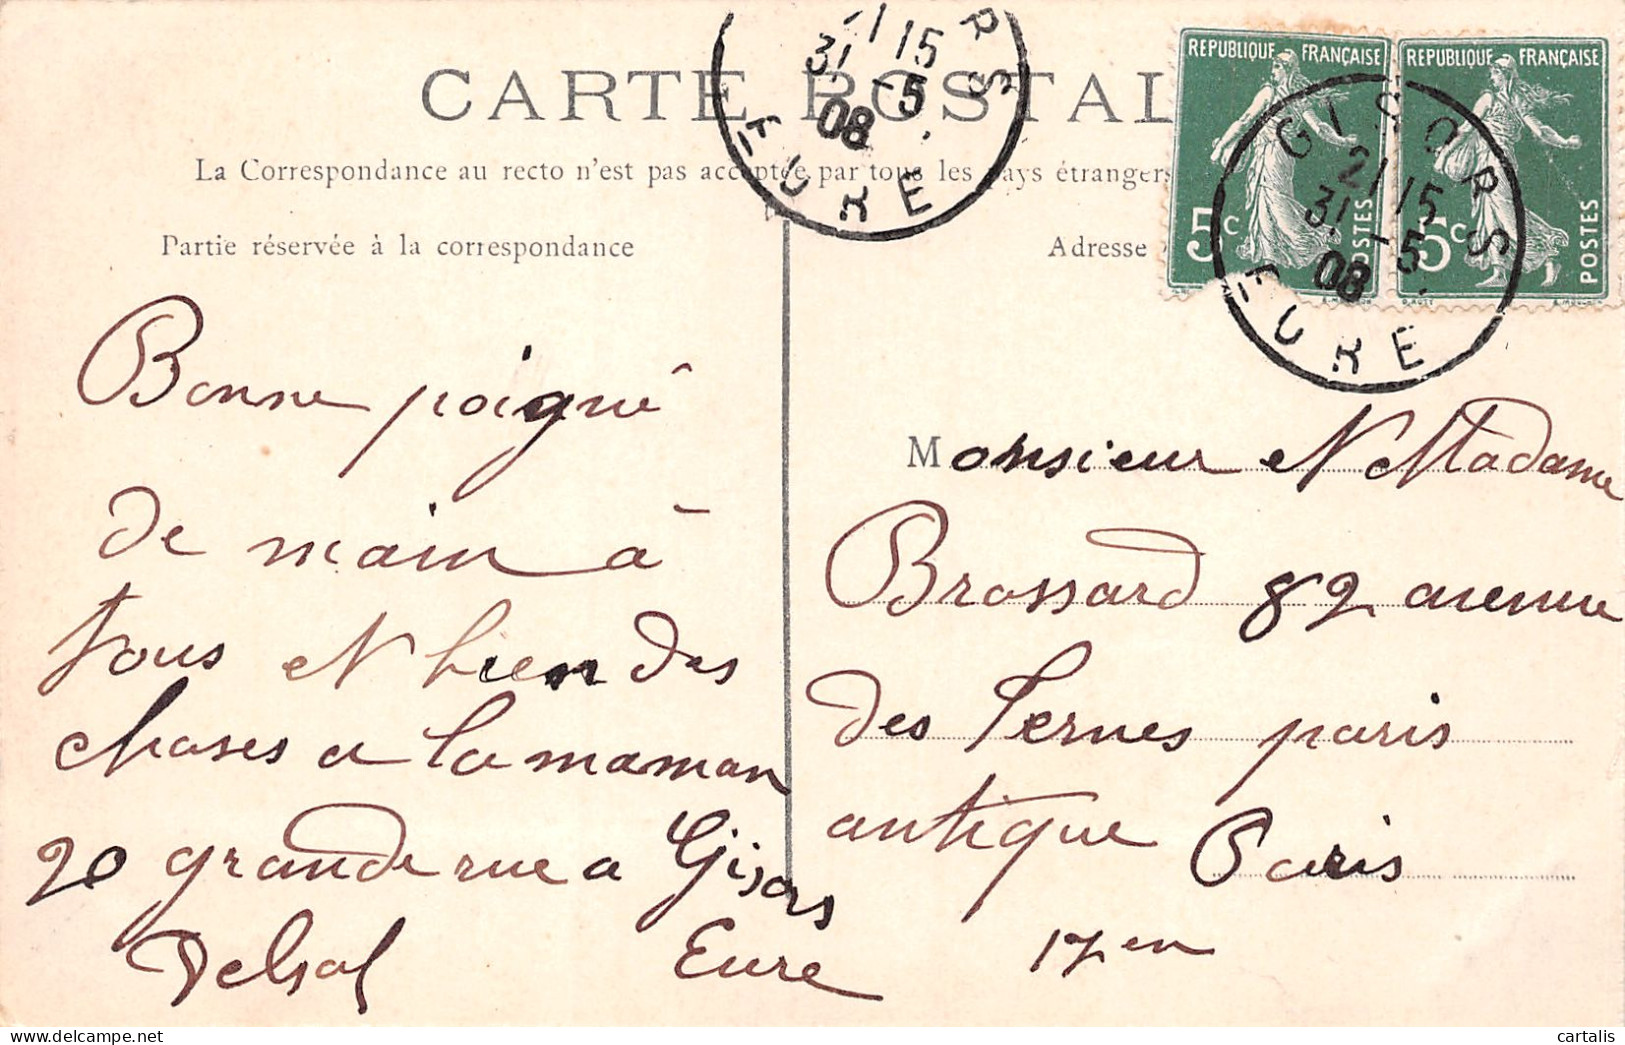 CARTE POSTAL
La Correspondance au recto n'est pas acceptée par tous les pays étrangers
Partie réservée à la correspondance
Adresse
REPUBLIQUE FRANÇAISE
5c
POSTES
REPUBLIQUE FRANÇAISE
5c
POSTES
RS
21 15
31 -5
08
EURE
GISORS
21 15
31 -5
08
EURE
Bonne poigné
de main à
tous et bien des
choses a la maman
20 grande rue a Gisors
Delsol Eure
Monsieur et Madame
Brossard 82 avenue
des Ternes paris
antique Paris
17en
cartalis